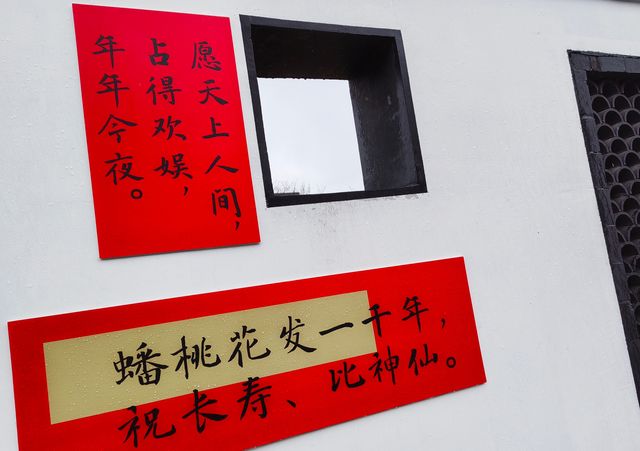 愿天上人间，
占得欢娱，
年年今夜。
蟠桃花发一千年，
祝长寿、比神仙。